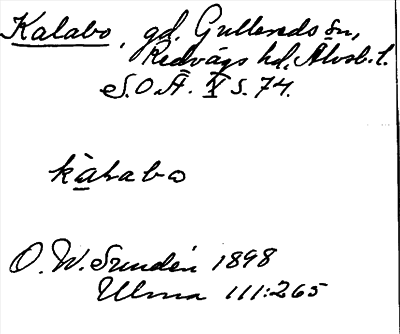 Kalabo, gd. Gullereds sn,
Redvägs hd, Älvsb. l.
S.O.Ä. X s. 74.
kàlabo
O. W. Sundén 1898
Ulma 111:265